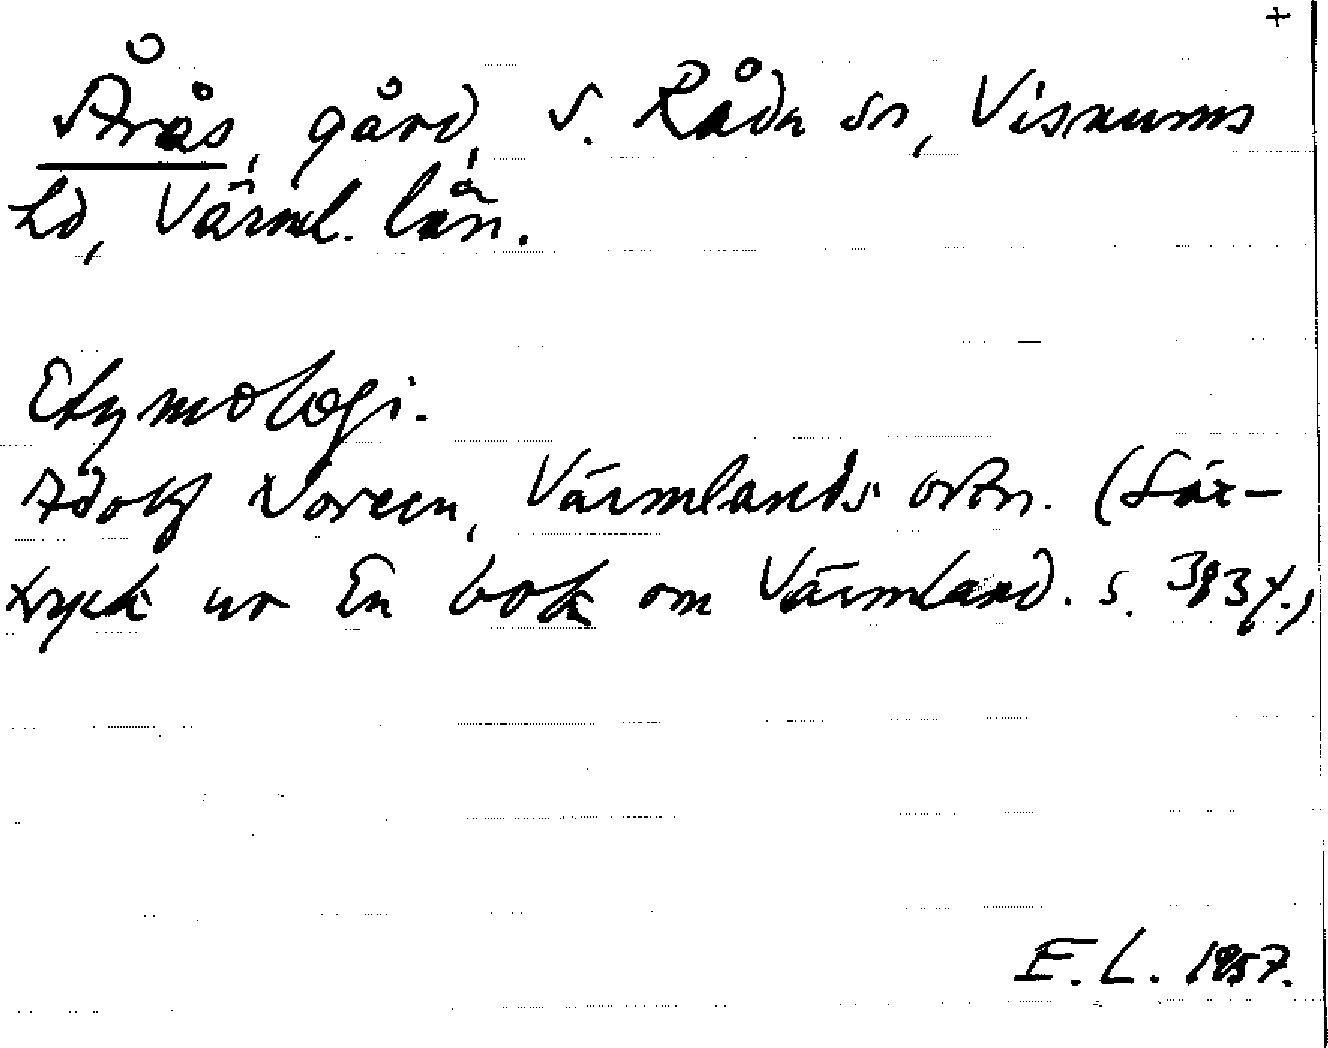 +
Årås, gård, S. Råda sn, Visnums
hd, Värml. län.
Etymologi.
Adolf Noreen, Värmlands ortn. (Sär-
tryck ur En bok om Värmland. s. 393 f.,
E. L. 1957.